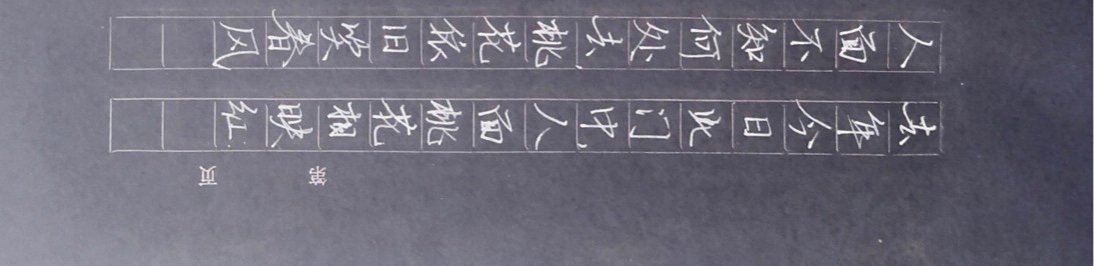 第 页
去年今日此门中人面桃花相映红
人面不知何处去桃花依旧笑春风